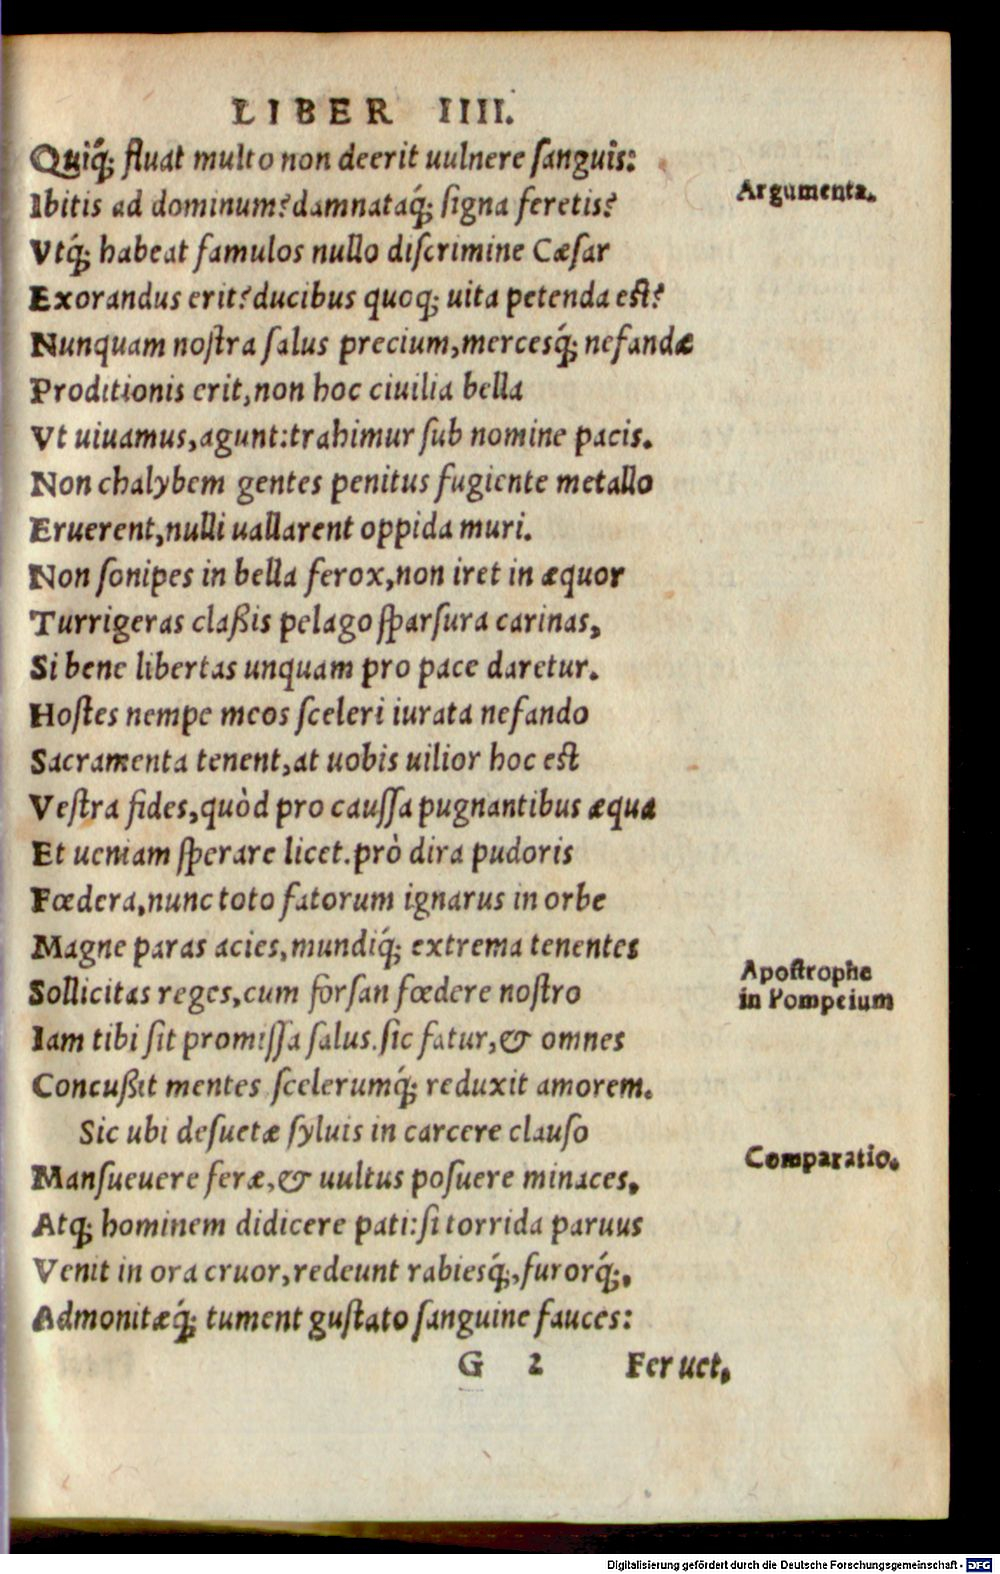 LIBER IIII.
Quiq́; fluat multo non deerit uulnere sanguis:
Argumenta.
Ibitis ad dominum? damnataq́; signa feretis?
Vtq́; habeat famulos nullo discrimine Cæsar
Exorandus erit? ducibus quoq; uita petenda est?
Nunquam nostra salus precium, mercesq́; nefandæ
Proditionis erit, non hoc ciuilia bella
Vt uiuamus, agunt: trahimur sub nomine pacis.
Non chalybem gentes penitus fugiente metallo
Eruerent, nulli uallarent oppida muri.
Non sonipes in bella ferox, non iret in æquor
Turrigeras claßis pelago sparsura carinas,
Si bene libertas unquam pro pace daretur.
Hostes nempe meos sceleri iurata nefando
Sacramenta tenent, at uobis uilior hoc est
Vestra fides, quòd pro caussa pugnantibus æqua
Et ueniam sperare licet. prò dira pudoris
Fœdera, nunc toto fatorum ignarus in orbe
Magne paras acies, mundiq́; extrema tenentes
Apostrophe
in Pompeium
Sollicitas reges, cum forsan fœdere nostro
Iam tibi sit promissa salus. sic fatur, & omnes
Concußit mentes scelerumq́; reduxit amorem.
Sic ubi desuetæ syluis in carcere clauso
Comparatio.
Mansueuere feræ, & uultus posuere minaces,
Atq; hominem didicere pati: si torrida paruus
Venit in ora cruor, redeunt rabiesq́;, furorq́;,
Admonitæq́; tument gustato sanguine fauces:
G 2 Feruet,
Digitalisierung gefördert durch die Deutsche Forschungsgemeinschaft - DFG